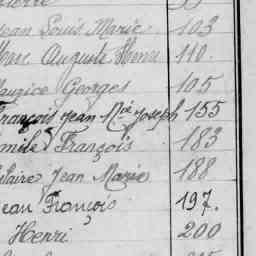 Jean Louis Marie 103
Auguste Henri 110.
Maurice Georges 105
François Jean Joseph 155
Emile François 183
Hilaire Jean Marie 188
Jean François 197.
Henri 200